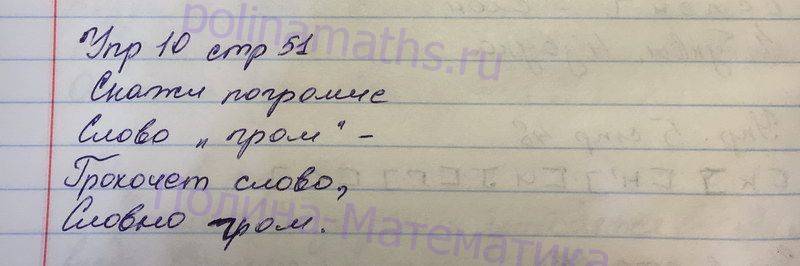 polinamaths.ru
Упр 10 стр 51
Скажи погромче
Слово „гром" –
Грохочет слово,
Словно гром.
Полина-Математика